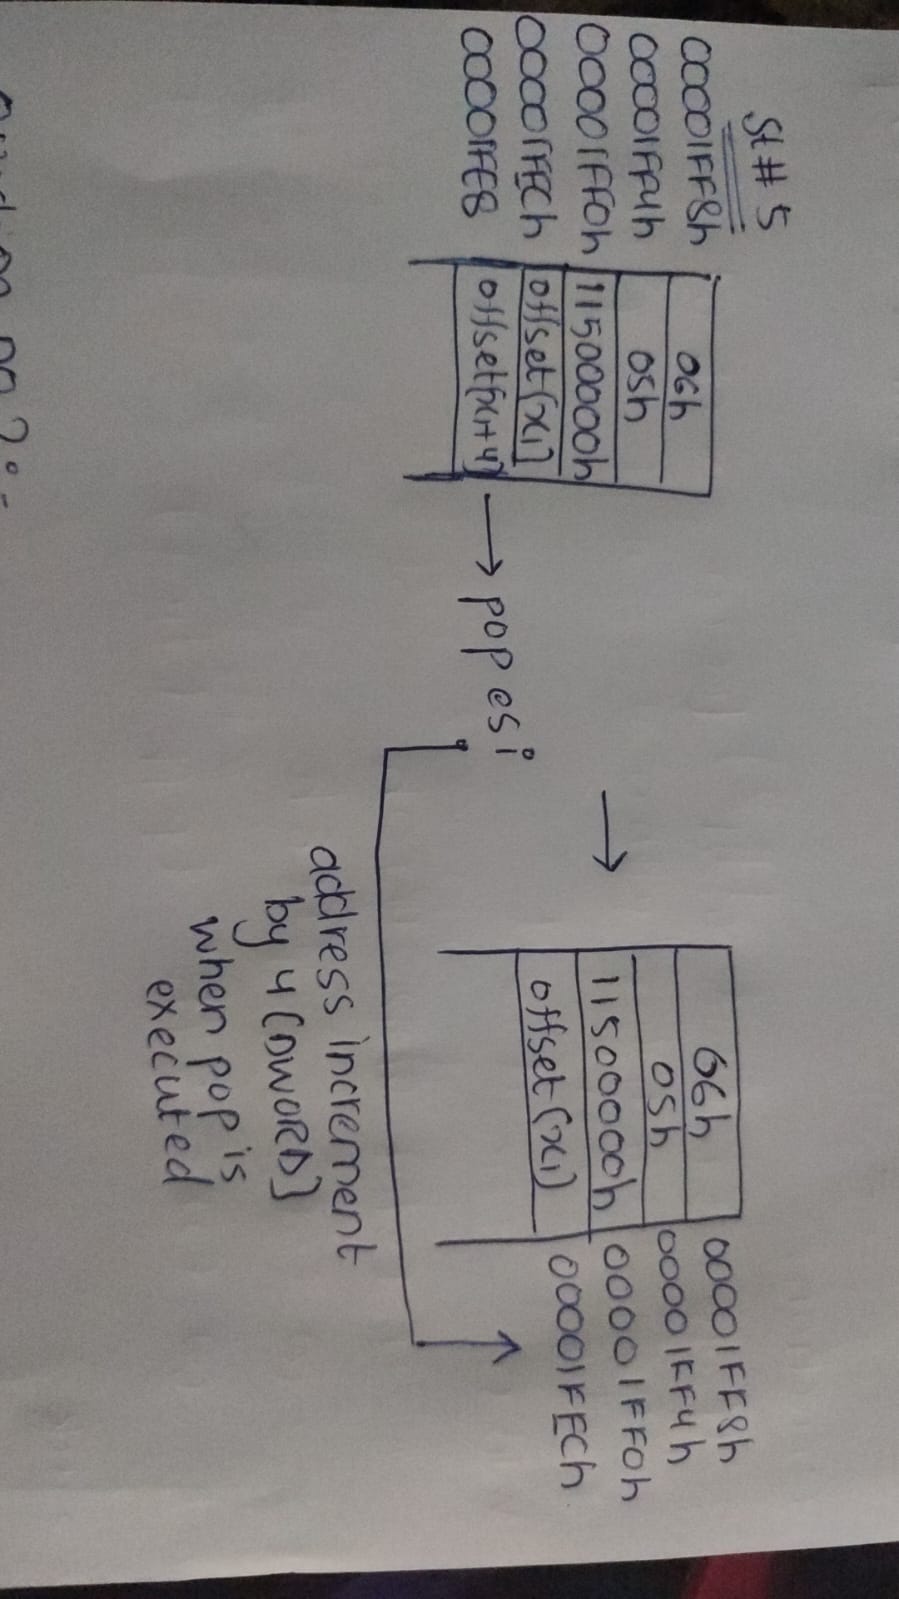 St # 5
00001FF8h 06h
00001FF4h 05h
00001FF0h 11500000h
00001FECh offset(x1]
00001FE8 offset[x1+4]
→ pop esi
→
06h 00001FF8h
05h 00001FF4h
11500000h 00001FF0h
offset (x1) 00001FECh
address increment
by 4 (DWORD]
when pop is
executed